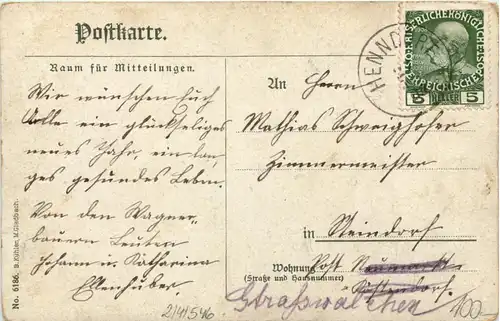 Postkarte.
Raum für Mitteilungen.
Wir wünschen Euch
Alle ein glückseliges
neues Jahr, ein lan-
ges gesundes Leben.
Von den Wagner-
bauern Leuten
Johann u. Katharina
Ellenhuber
No. 6186. B. Kühlen, M. Gladbach.
2141546
An Herrn
Mathias Schweighofer
Zimmermeister
in Steindorf
Wohnung Post Neumarkt
(Straße und Hausnummer)
Straßwalchen
100.-
HENND
5 HELLER 5